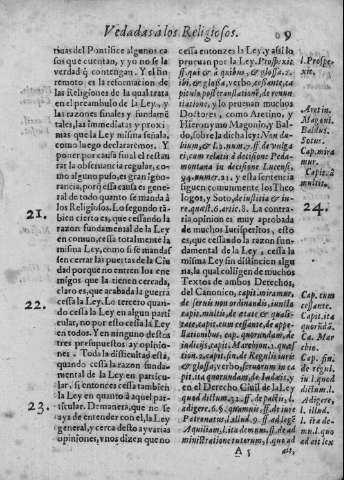 Vedadas à los Religiosos. 9
ticas del Pontifice algunos ca-
sos que cuentan, y yo no se la
verdad q̃ contengan. Y el fin
remoto es la reformacion de
las Religiones de la qual trata
en el preambulo de la Ley, y
las razones finales y fundamẽ
tales, las immediatas y proxi
mas que la Ley misma señala,
como luego declararemos. Y
poner por causa final el restau
rar la obseruancia regular, co-
mo alguno puso, es gran igno-
rancia, porque essa causa es ge-
neral de todo quanto se manda à
21. los Religiosos. Lo segundo tã
bien cierto es, que cessando la
razon fundamental de la Ley
en comun, cessa totalmente la
misma Ley, como si se mandas
sen cerrar las puertas de la Ciu
dad porque no entren los ene
migos que la tienen cercada,
claro es, que acabada la guerra
22. cessa la Ley. Lo tercero quan-
do cessa la Ley en algun parti
cular, no por esso cessa la Ley
en todos. Y en ninguno destos
tres presupuestos ay opinio-
nes. Toda la dificultad està,
quando cessa la razon funda-
mental de la Ley en particu-
lar, si entonces cessa tambien
la Ley en quanto à aquel par-
23. ticular. De manera, que no se
aya de entender con el, la Ley
general, y cerca desto ay varias
opiniones, vnos dizen que no
cessa entonzes la Ley, y assi lo
prueuan por la Ley. Prospexit.
ff. qui & à quibus, & glossa. 2.
ibi, & glossa, verbo, cessante, ca
pitulo post translationem, de renun
tiatione, y lo prueuan muchos
Doctores, como Aretino, y
Hieronymo Magonio, y Bal-
do, sobre la dicha ley: Non du-
bium, & l. 2. num. 7. ff. de vulga
ri, cum relatis à decisione Pede-
montana in decisione Lucensi.
94. numer. 21. y esta sentencia
siguen comunmente los Theo
logos, y Soto, de iustitia & iu-
24. re. quæst. 6. artic. 8. La contra-
ria opinion es muy aprobada
de muchos Iurisperitos, esto
es, que cessando la razon sun-
damental de la Ley, cessa la
misma Ley sin distincion algu
na, lo qual colligen de muchos
Textos de ambos Derechos,
del Canonico, capit. miramur,
de seruis non ordinandis, iuncta
capit. multis, de ætate & quali-
tate, capit. cum cessante, de appe-
llationibus, cap. quorundam, de
iudæis, capit. Marchion. 1. quæst
tion. 2. capit. fin. de Regulis iuris
& glossa, verbo, seruorum in ca
pit. ita quorundam, de Iudæis, y
en el Derecho Ciuil de la Ley
quod dictum. 32. ff. de pactis, l.
adigere. 6. §. quamuis, ff. de iure
Patronatus, l. illud. 9. ff. ad legem
Aquiliam, l. ita demum. ff. de ad
ministratione tutorum, l. quo ad
A 5 ait,
l. Prospe-
xit.
Aretin.
Magoni.
Baldus.
Sotus.
Cap. mira
mur.
Capit. à
multis.
Cap. cum
cessante.
Capit. ita
quorũdã.
Ca. Mar
chio.
Cap. fin.
de regul.
iu l. quod
dictum. l.
Adigere,
l. illud. l.
l. ita de
mũ. l. quo
ad ait lex